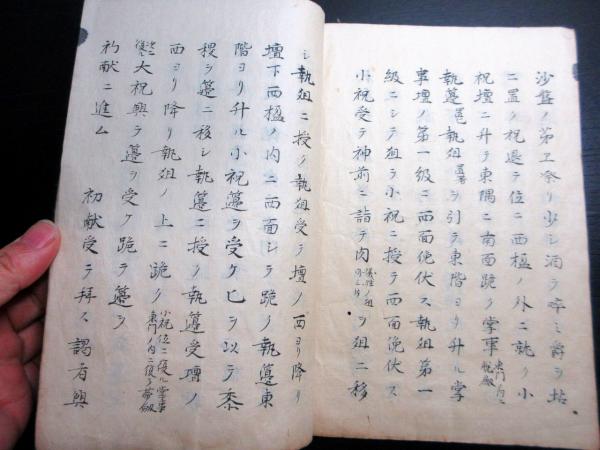 沙盤ノ第ヱ祭リ少シ酒ヲ啐ミ爵ヲ坫
ニ置ク祝退テ位ニ西楹ノ外ニ就ク小
祝壇ニ升テ東隅ニ南面跪ク掌事
執籩執俎ヲ引テ東階ヨリ升ル掌
事壇ノ第一級ニ西面俛伏ス執俎第一
級ニシテ俎ヲ小祝ニ授テ西面俛伏ス
小祝受テ神前ニ詣テ肉ヲ俎ニ移
シ執俎ニ授ク執俎受テ壇ノ西ヨリ降リ
壇下西楹ノ内ニ西面シテ跪ク執籩東
階ヨリ升ル小祝籩ヲ受ケ匕ヲ以テ黍
稷ヲ籩ニ移シ執籩ニ授ク執籩受壇ノ
西ヨリ降リ執俎ノ上ニ跪ク小祝位ニ復ル掌事東門ノ内ニ復ル
大祝興テ籩ヲ受ケ跪テ籩ヲ
初献ニ進ム 初献受テ拝ス謁者興